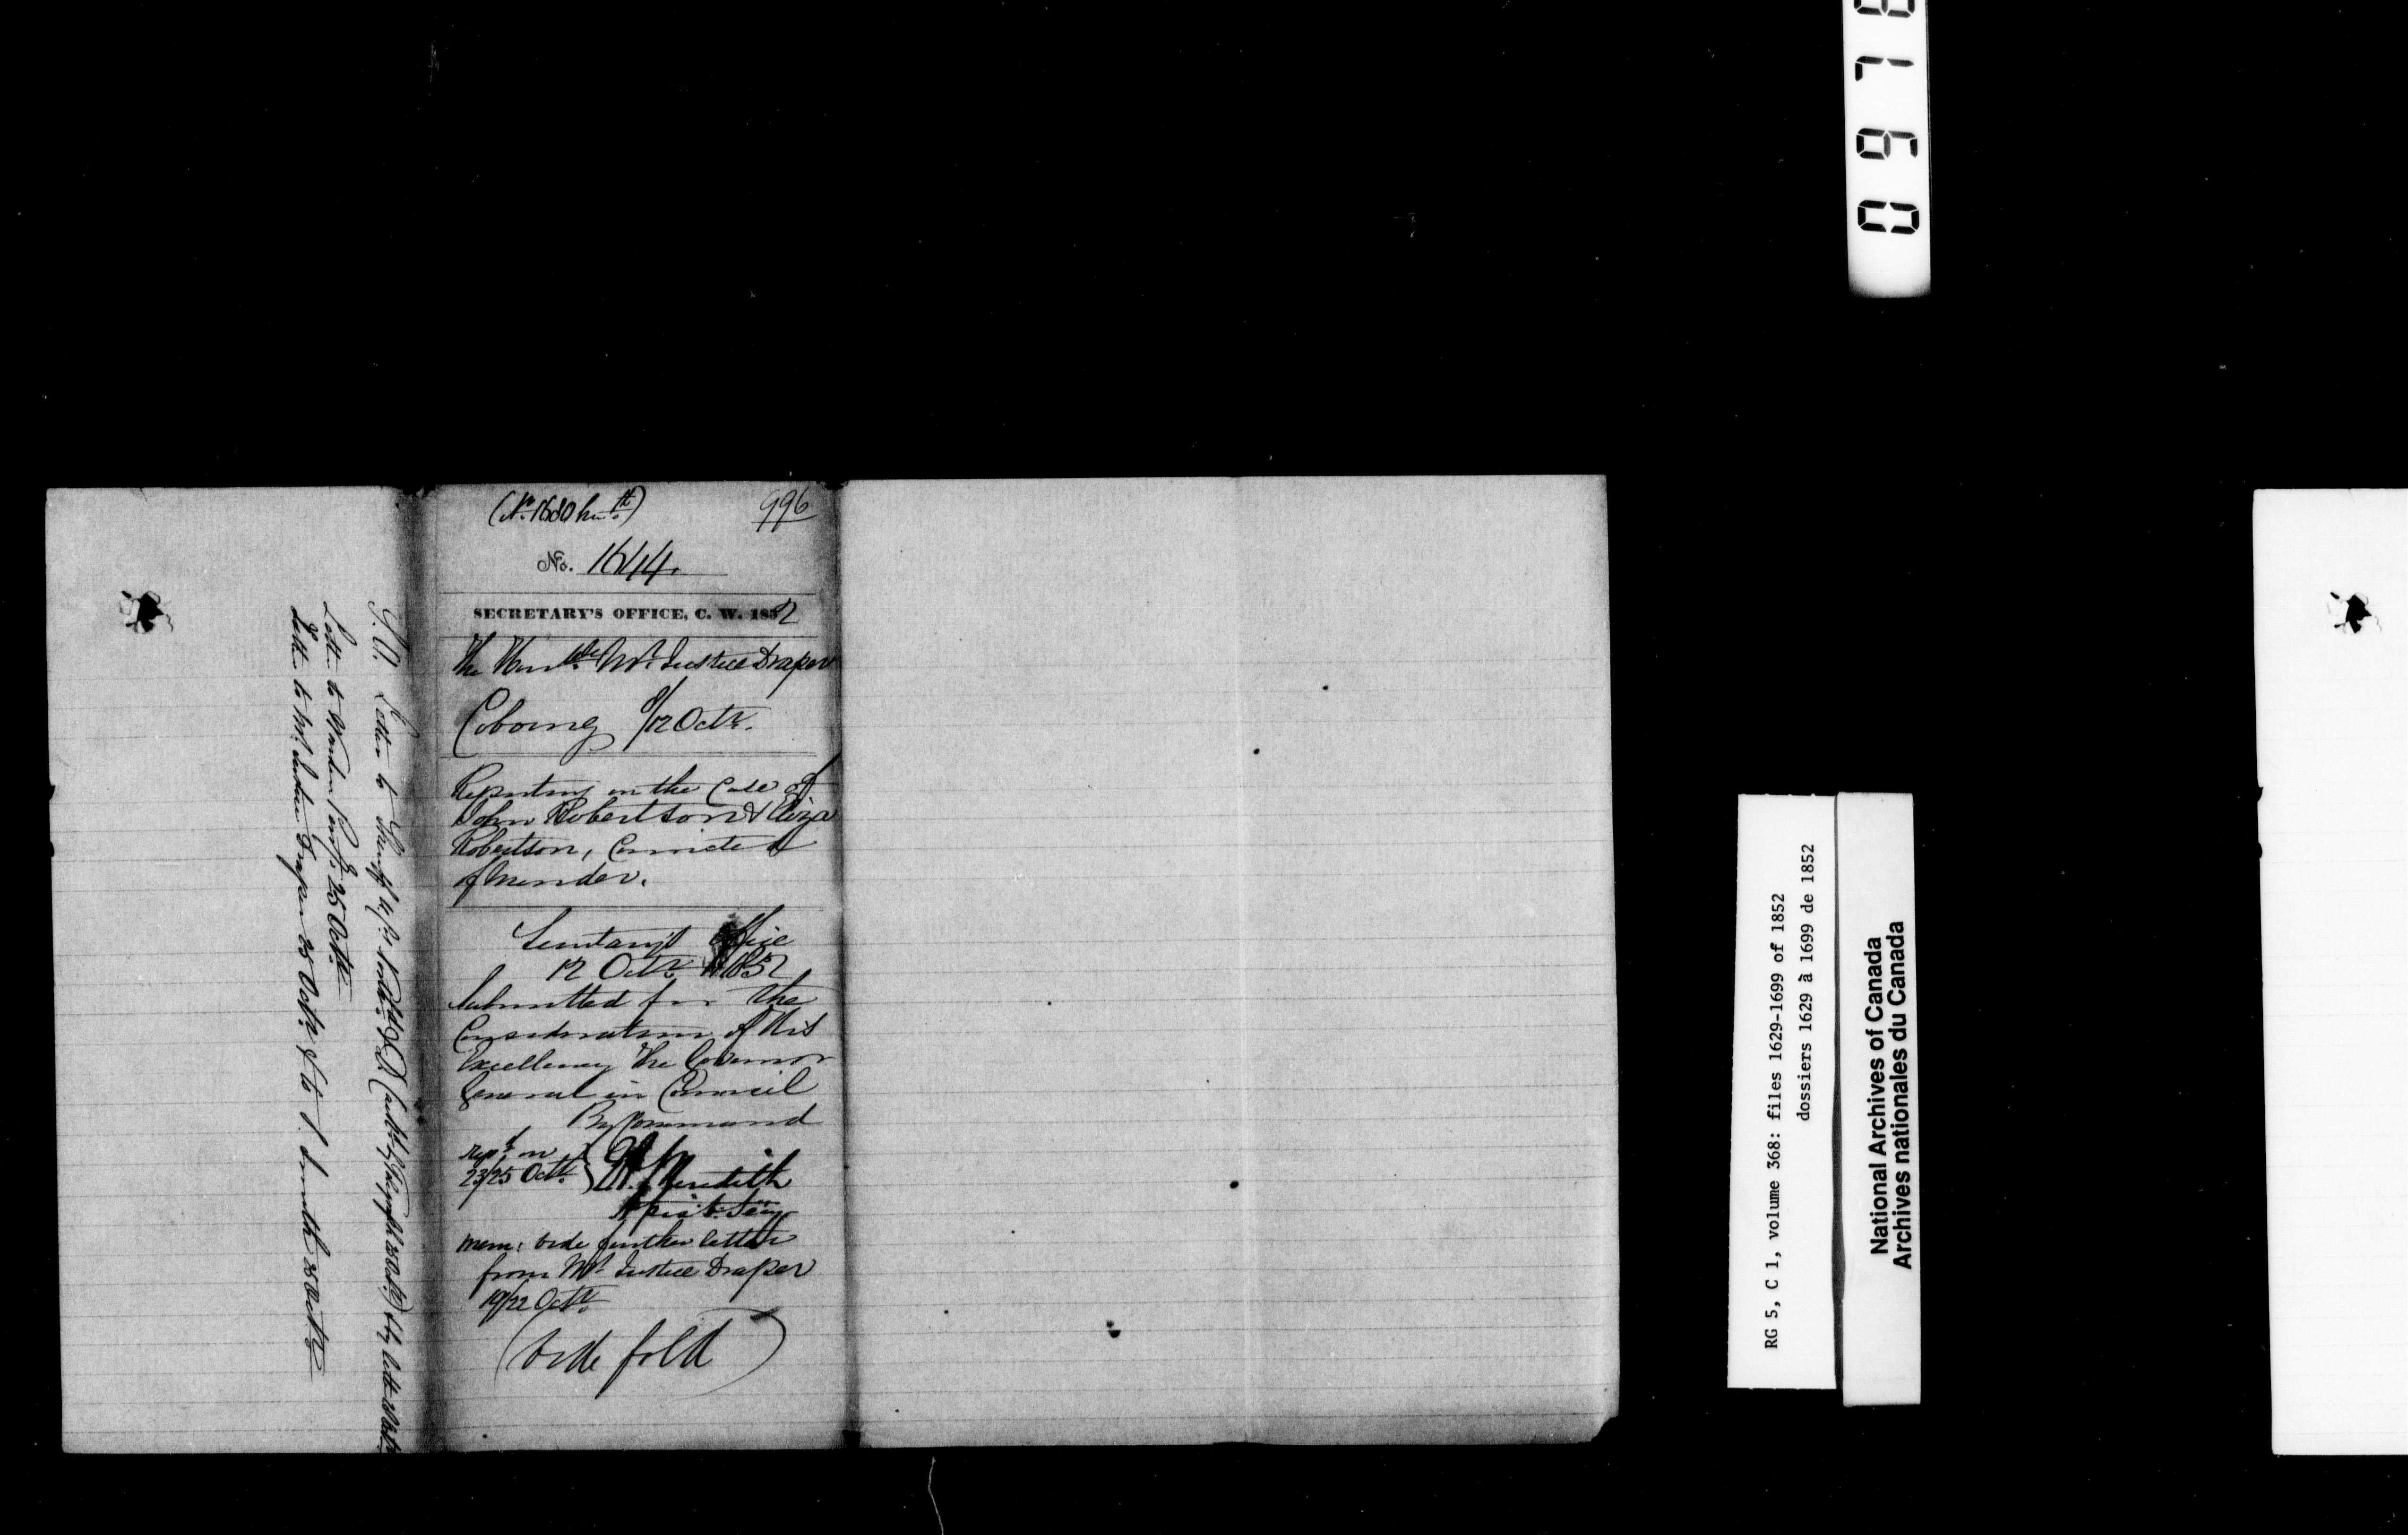 (No. 1680 )
996
No. 1644.
SECRETARY'S OFFICE, C. W. 1852
The Honble Mr. Justice Draper
Cobourg 9/12 Octr.
Reporting on the Case of
John Robertson & Eliza
Robertson, Convicted
of Murder.
Secretary's Office
12 Octr. 1852
Submitted for the
Consideration of His
Excellency the Governor
General in Council
By Command
Rept. on
23/25 Octr.
Meredith
Assist. Secy
Mem: vide further letter
from Mr. Justice Draper
19/22 Octr.
(vide fold)
Letter to Sheriff by Telegraph by lett
Lett. to Warden Peny. 25 Octr.
Letter to Mr. Justice Draper 25 Octr. & to J. Smith 25 Octr.
0978
RG 5, C 1, volume 368: files 1629-1699 of 1852
dossiers 1629 à 1699 de 1852
National Archives of Canada
Archives nationales du Canada